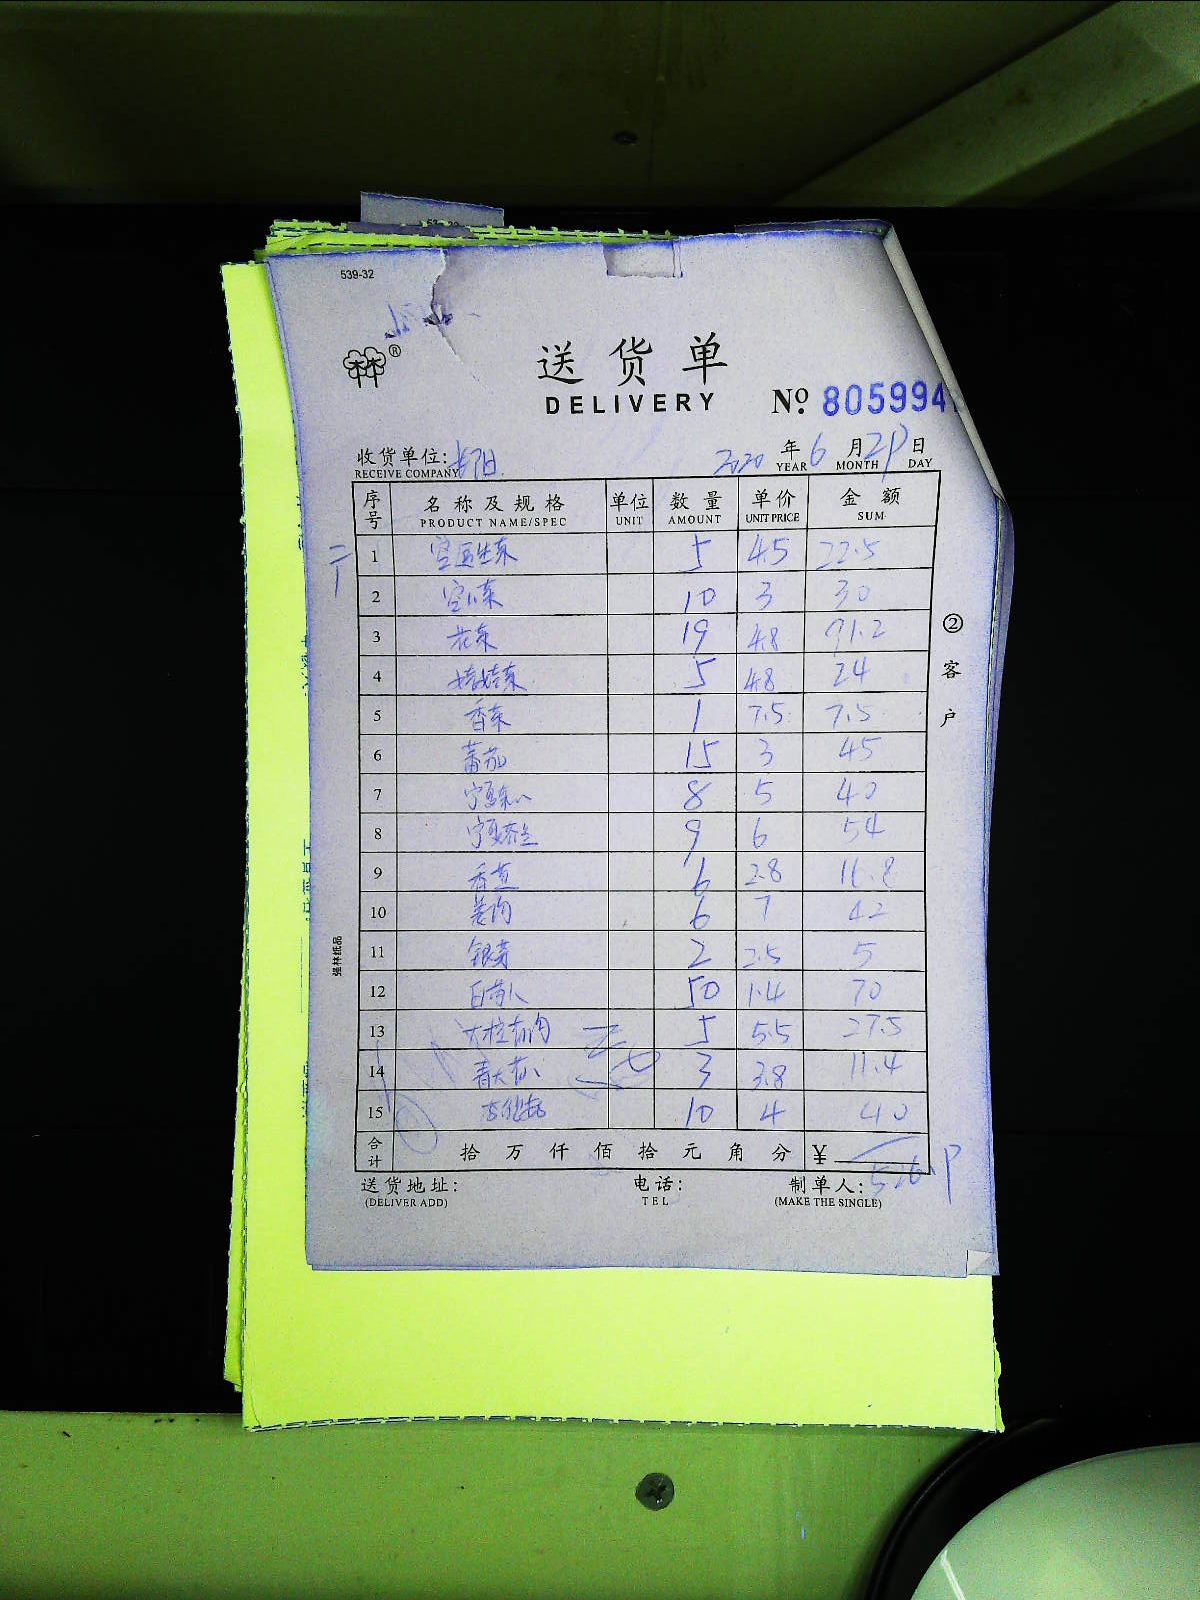 539-32
®
送货单
DELIVERY
No. 8059947
收货单位:
RECEIVE COMPANY
2020 年 6 月 29 日
YEAR MONTH DAY
序号 名称及规格 单位 数量 单价 金额
PRODUCT NAME/SPEC UNIT AMOUNT UNIT PRICE SUM
1 5 4.5 22.5
2 10 3 30
3 花菜 19 4.8 91.2
4 娃娃菜 5 4.8 24
5 香菜 1 7.5 7.5
6 蕃茄 15 3 45
7 宁夏菜心 8 5 40
8 宁夏芥兰 9 6 54
9 香葱 6 2.8 16.8
10 姜肉 6 7 42
11 银芽 2 2.5 5
12 50 1.4 70
13 5 5.5 27.5
14 3 3.8 11.4
15 10 4 40
合计 拾 万 仟 佰 拾 元 角 分 ¥
526.9
送货地址: 电话: 制单人:
(DELIVER ADD) TEL (MAKE THE SINGLE)
②客户
强林纸品